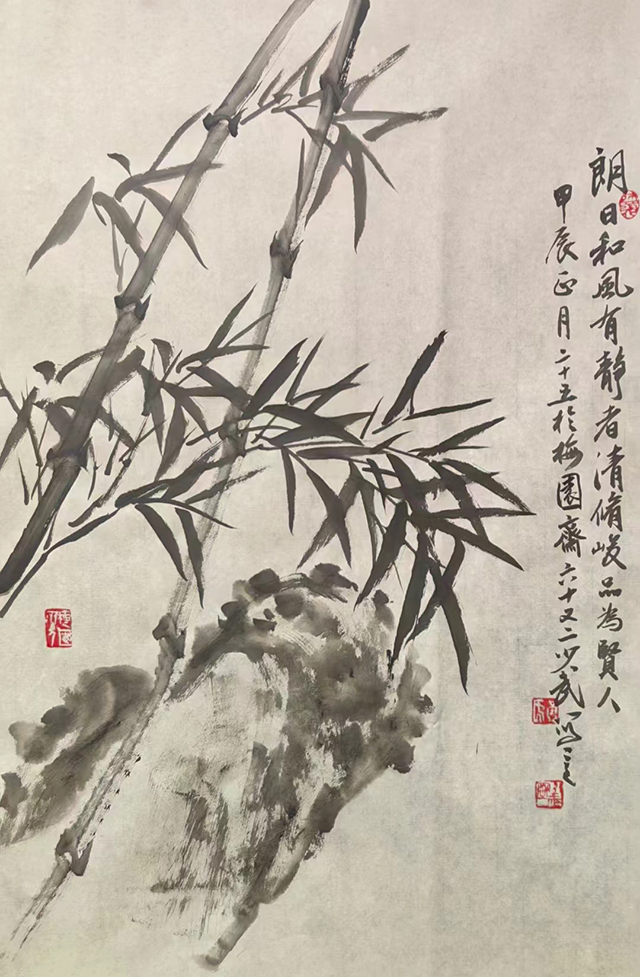 朗日和風有靜者清脩峻品為賢人
甲辰正月二十五於梅園齋六十又二少武